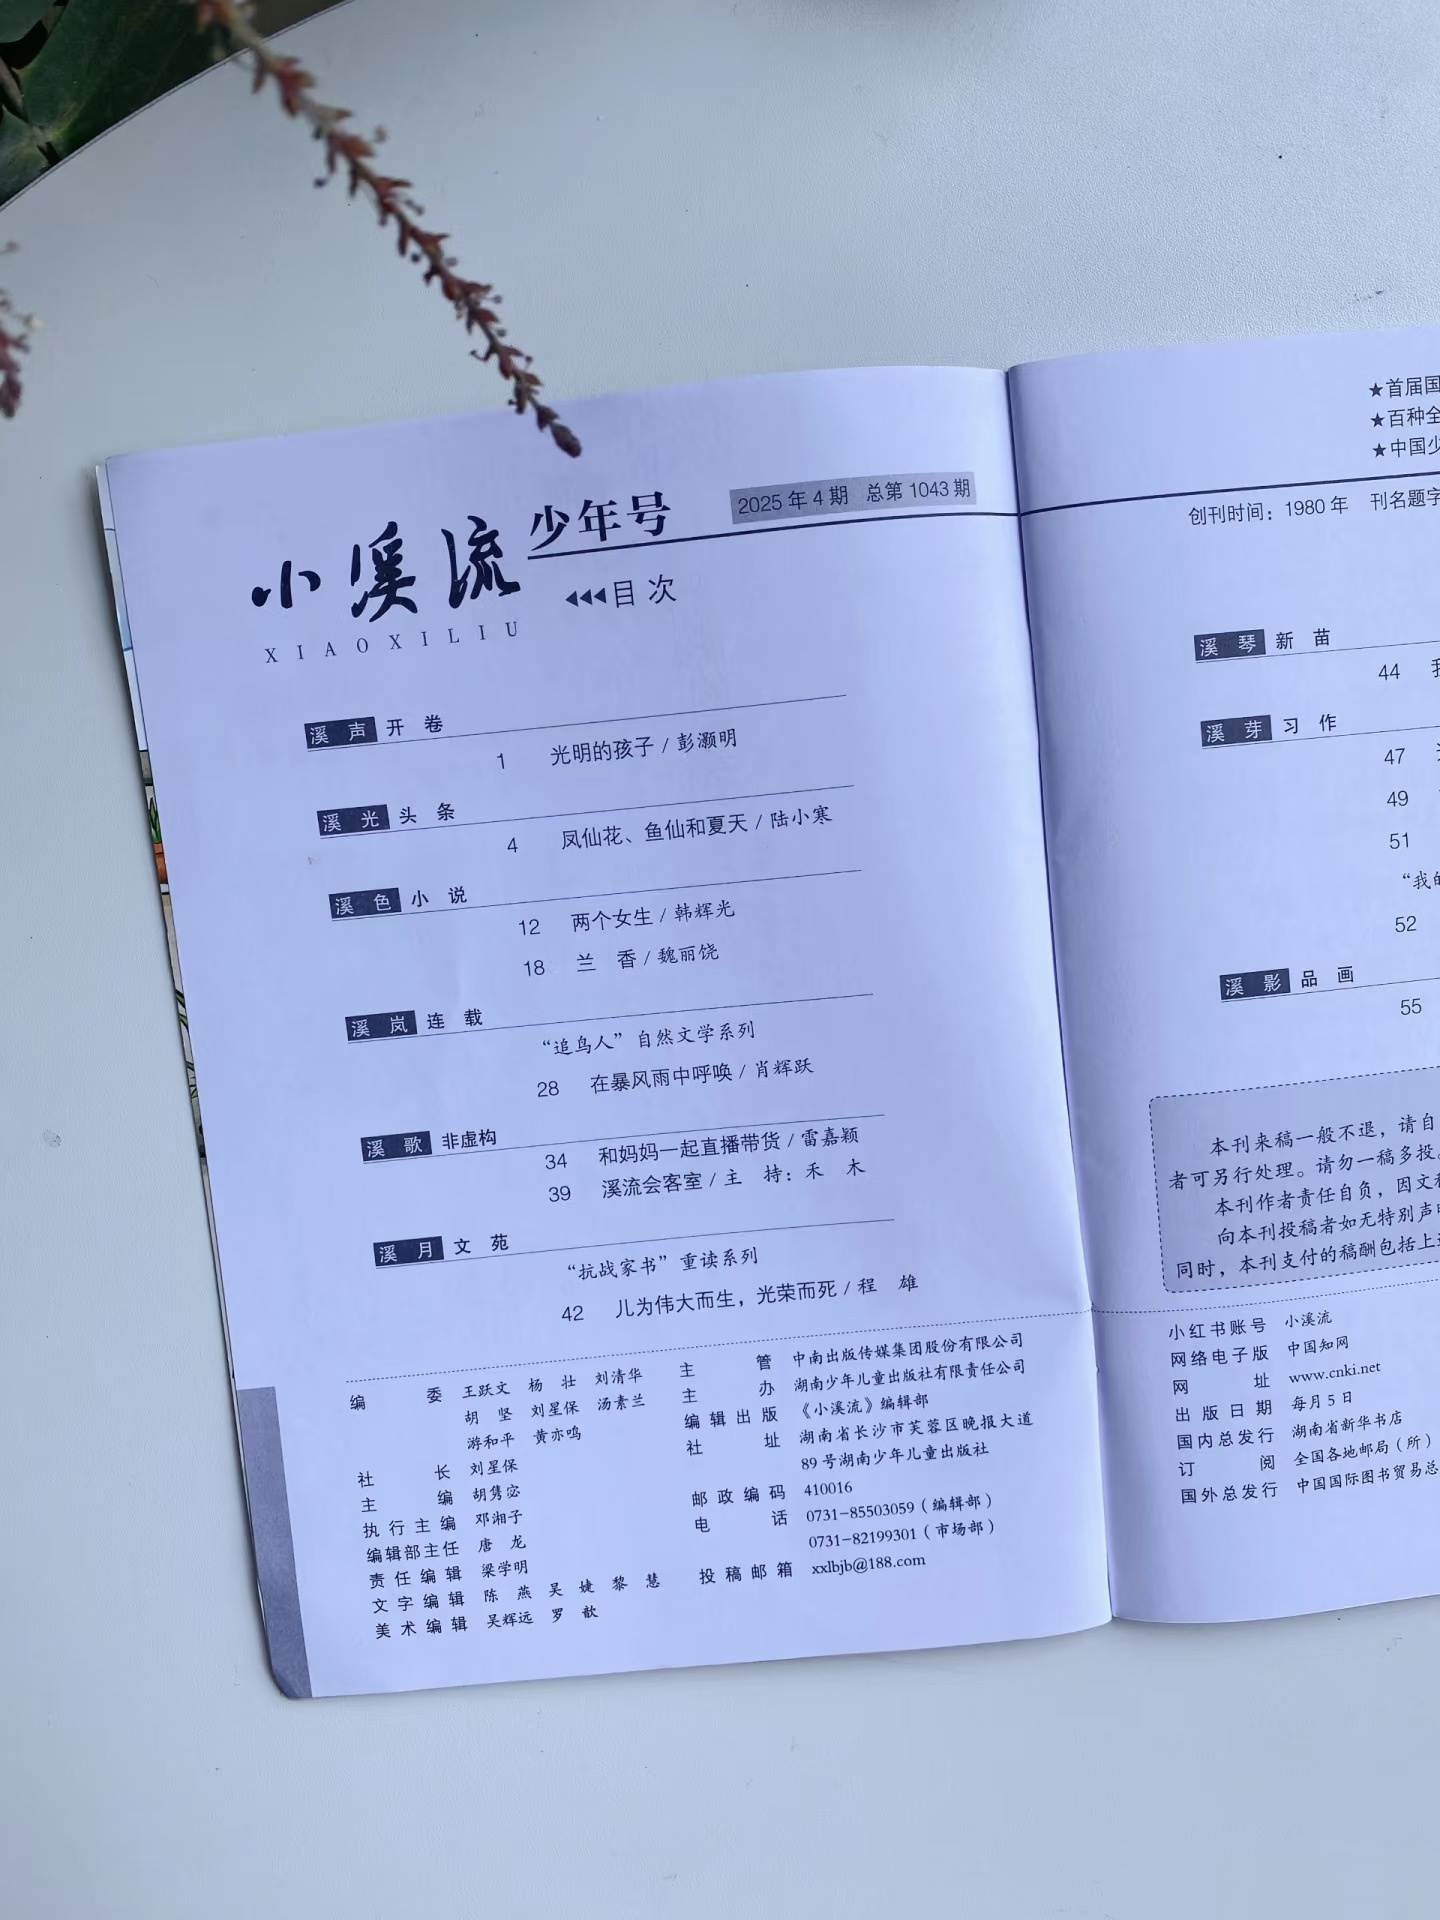 小溪流 少年号
2025年4期 总第1043期
XIAOXILIU
目次
溪声 开卷
1 光明的孩子 / 彭灏明
溪光 头条
4 凤仙花、鱼仙和夏天 / 陆小寒
溪色 小说
12 两个女生 / 韩辉光
18 兰 香 / 魏丽饶
溪岚 连载
“追鸟人”自然文学系列
28 在暴风雨中呼唤 / 肖辉跃
溪歌 非虚构
34 和妈妈一起直播带货 / 雷嘉颖
39 溪流会客室 / 主 持：禾 木
溪月 文苑
“抗战家书”重读系列
42 儿为伟大而生，光荣而死 / 程 雄
编委 王跃文 杨 壮 刘清华
胡 坚 刘星保 汤素兰
游和平 黄亦鸣
社长 刘星保
主编 胡隽宓
执行主编 邓湘子
编辑部主任 唐 龙
责任编辑 梁学明
文字编辑 陈 燕 吴 婕 黎 慧
美术编辑 吴辉远 罗 歆
主管 中南出版传媒集团股份有限公司
主办 湖南少年儿童出版社有限责任公司
编辑出版 《小溪流》编辑部
社址 湖南省长沙市芙蓉区晚报大道
89号湖南少年儿童出版社
邮政编码 410016
电话 0731-85503059（编辑部）
0731-82199301（市场部）
投稿邮箱 xxlbjb@188.com
★首届国
★百种全
★中国少
创刊时间：1980年 刊名题字
溪琴 新苗
44
溪芽 习作
47
49
51
“我的
52
溪影 品画
55
本刊来稿一般不退，请自
者可另行处理。请勿一稿多投。
本刊作者责任自负，因文
向本刊投稿者如无特别声明
同时，本刊支付的稿酬包括上
小红书账号 小溪流
网络电子版 中国知网
网址 www.cnki.net
出版日期 每月5日
国内总发行 湖南省新华书店
订阅 全国各地邮局（所）
国外总发行 中国国际图书贸易总